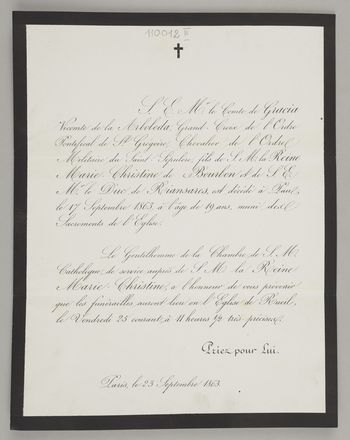 110012 II
S. E. Mr. le Comte de Gracia
Vicomte de la Arboleda, Grand-Croix de l'Ordre
Pontifical de St. Grégoire, Chevalier de l'Ordre
Militaire du Saint-Sépulcre, fils de S. M. la Reine
Marie-Christine de Bourbon et de S. E.
Mr. le Duc de Riansares, est décédé à Pau,
le 17 Septembre 1863, à l'âge de 19 ans, muni des
Sacrements de l'Eglise.
Le Gentilhomme de la Chambre de S. M.
Catholique, de service auprès de S. M. la Reine
Marie-Christine, a l'honneur de vous prévenir
que les funérailles auront lieu en l'Eglise de Rueil,
le Vendredi 25 courant, à 11 heures ½ très-précises.
Priez pour Lui.
Paris, le 23 Septembre 1863.